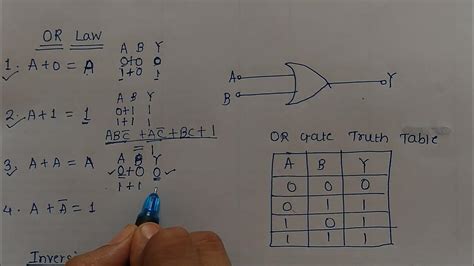 OR Law
A B Y
1. A+0 = A
0+0 0
1+0 1
A B Y
2. A+1 = 1
0+1 1
1+1 1
ABC̅ + AC̅ + BC + 1
= 1
A B Y
3. A+A = A
0+0 0
1+1
4. A + A̅ = 1
Invers
A
B
Y
OR Gate Truth Table
A B Y
0 0 0
0 1 1
1 0 1
1 1 1